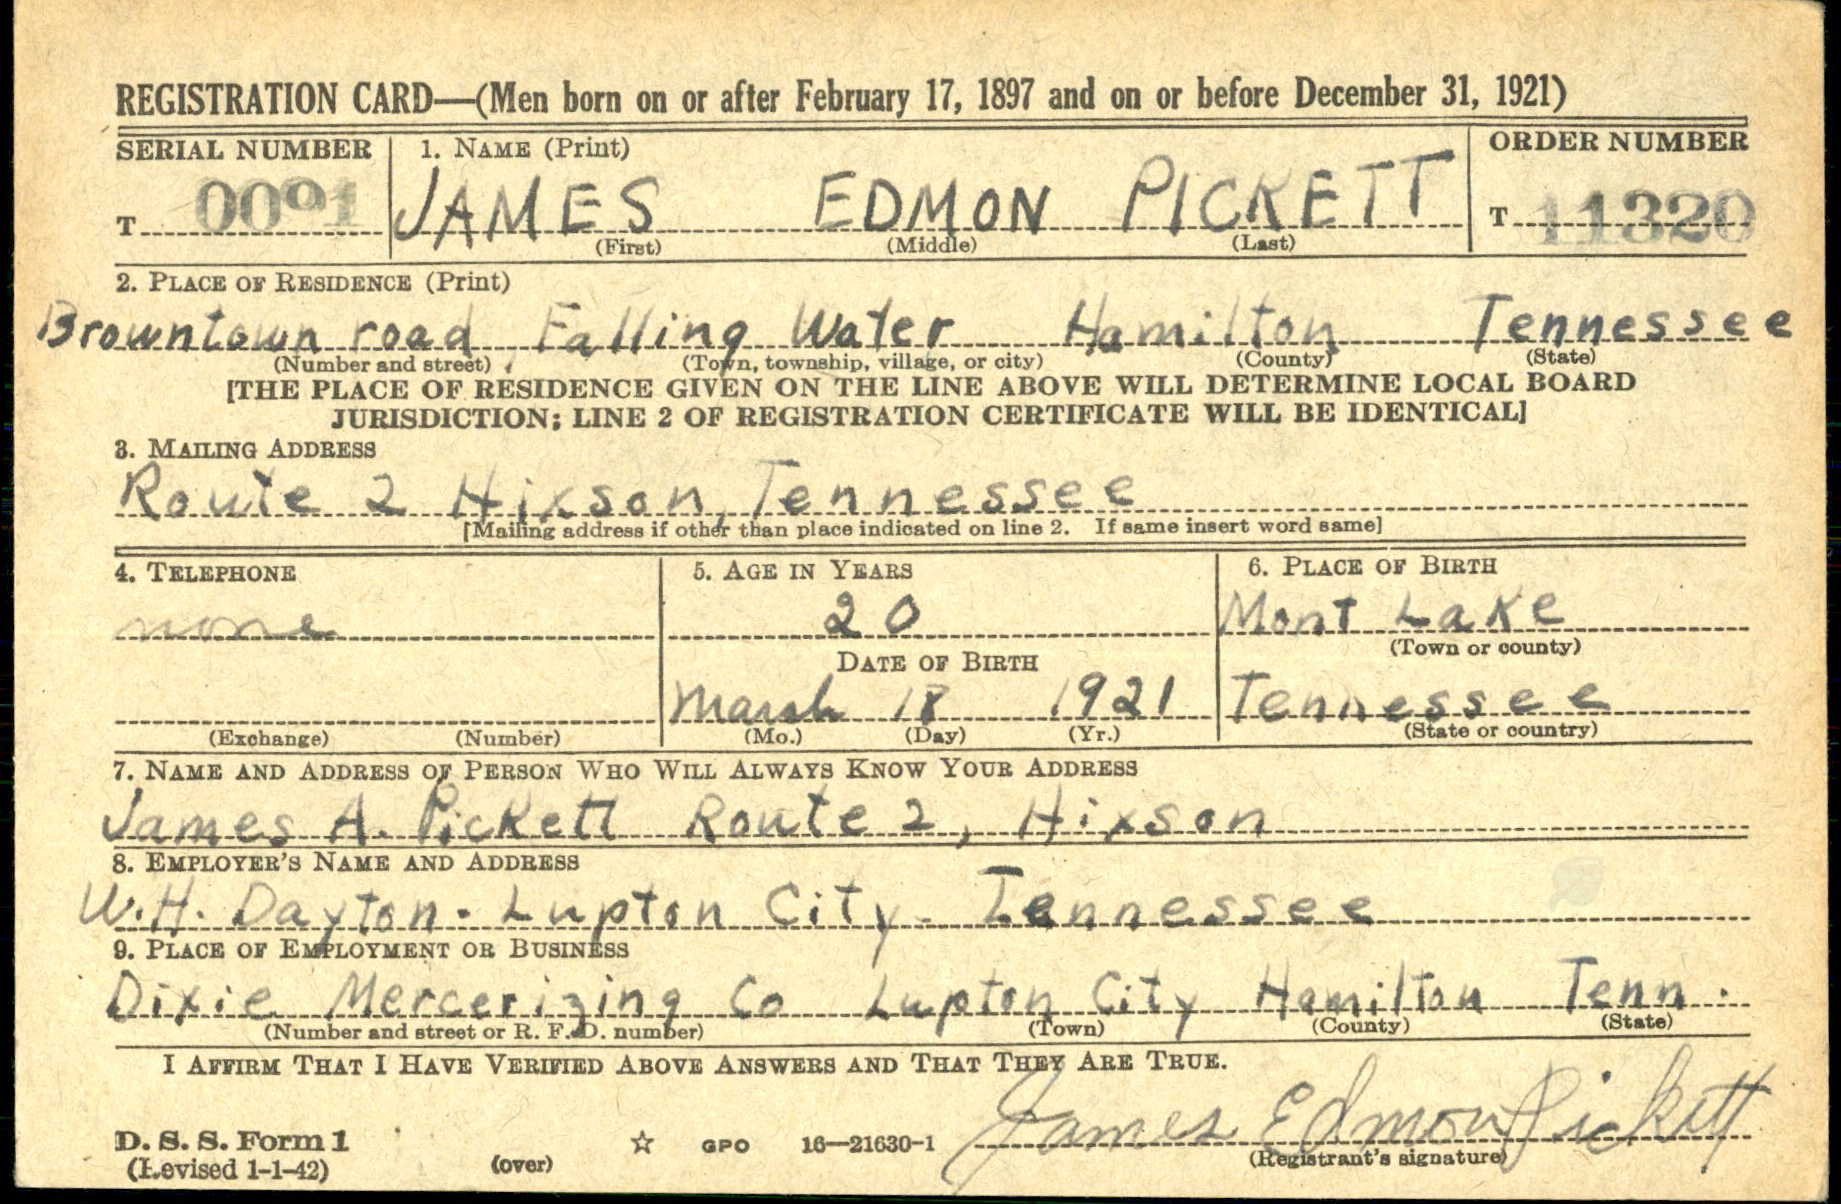 REGISTRATION CARD—(Men born on or after February 17, 1897 and on or before December 31, 1921)
SERIAL NUMBER 1. NAME (Print) ORDER NUMBER
T 0091 JAMES EDMON PICKETT T 11320
(First) (Middle) (Last)
2. PLACE OF RESIDENCE (Print)
Browntown road, Falling Water Hamilton Tennessee
(Number and street) (Town, township, village, or city) (County) (State)
[THE PLACE OF RESIDENCE GIVEN ON THE LINE ABOVE WILL DETERMINE LOCAL BOARD
JURISDICTION; LINE 2 OF REGISTRATION CERTIFICATE WILL BE IDENTICAL]
3. MAILING ADDRESS
Route 2 Hixson, Tennessee
[Mailing address if other than place indicated on line 2. If same insert word same]
4. TELEPHONE 5. AGE IN YEARS 6. PLACE OF BIRTH
none 20 Mont Lake
(Town or county)
DATE OF BIRTH
March 18 1921 Tennessee
(Exchange) (Number) (Mo.) (Day) (Yr.) (State or country)
7. NAME AND ADDRESS OF PERSON WHO WILL ALWAYS KNOW YOUR ADDRESS
James A. Pickett Route 2, Hixson
8. EMPLOYER'S NAME AND ADDRESS
W.H. Dayton - Lupton City - Tennessee
9. PLACE OF EMPLOYMENT OR BUSINESS
Dixie Mercerizing Co Lupton City Hamilton Tenn.
(Number and street or R. F. D. number) (Town) (County) (State)
I AFFIRM THAT I HAVE VERIFIED ABOVE ANSWERS AND THAT THEY ARE TRUE.
James Edmon Pickett
D. S. S. Form 1 ☆ GPO 16—21630-1 (Registrant's signature)
(Revised 1-1-42) (over)